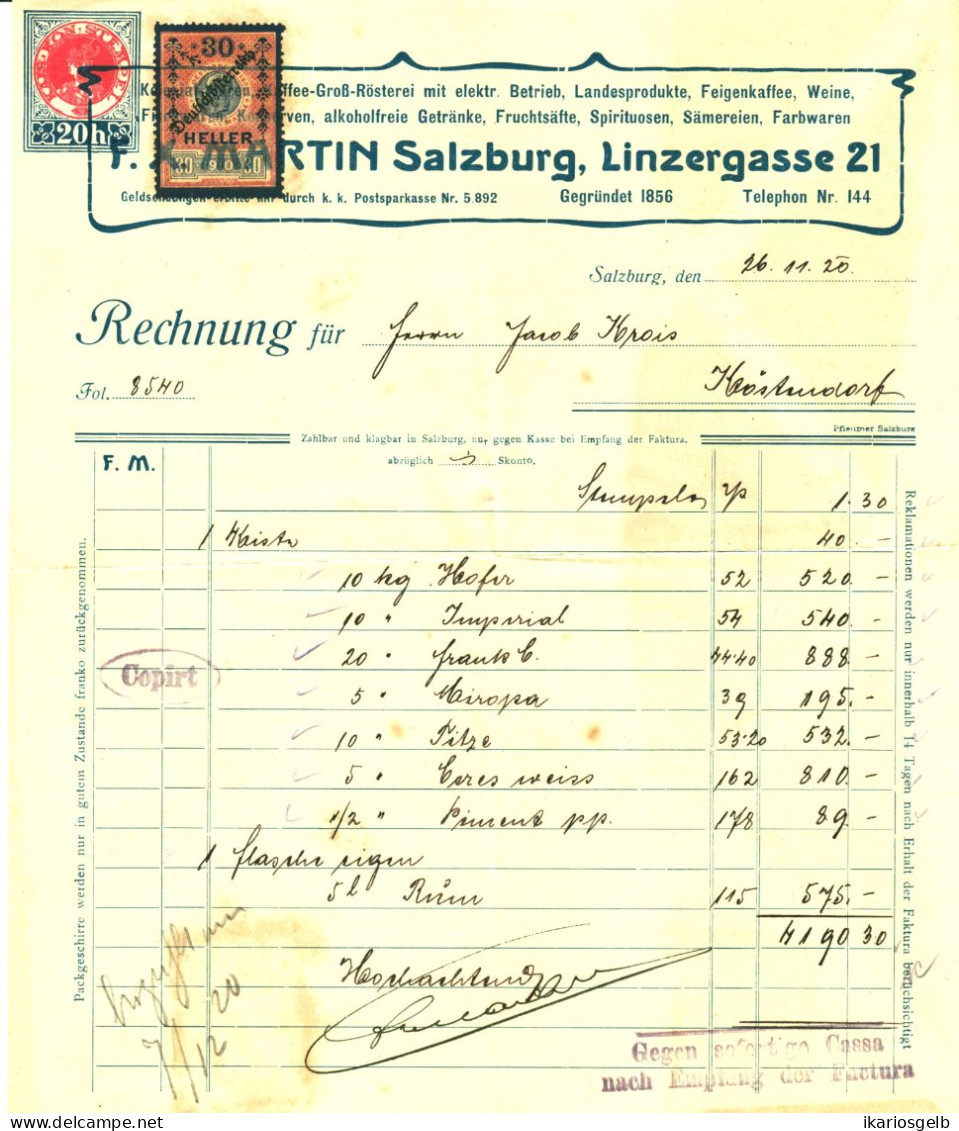 FAKTUREN-STEMPEL
20h
30
HELLER
30 1910 30
Kaffee-Groß-Rösterei mit elektr. Betrieb, Landesprodukte, Feigenkaffee, Weine,
alkoholfreie Getränke, Fruchtsäfte, Spirituosen, Sämereien, Farbwaren
MARTIN Salzburg, Linzergasse 21
Geldsendungen erbitte nur durch k. k. Postsparkasse Nr. 5.892 Gegründet 1856 Telephon Nr. 144
Salzburg, den 26.11.20.
Rechnung für Herrn Jacob Krois
Fol. 8540 Köstendorf
Pfleumer Salzburg
Zahlbar und klagbar in Salzburg, nur gegen Kasse bei Empfang der Faktura.
abzüglich Skonto.
F. M.
1.30
1 Kiste 40.–
10 kg Hofer 52 520.–
10 " Imperial 54 540.–
20 " Franck C. 44.40 888.–
5 " Miropa 39 195.–
10 " Titze 53.20 532.–
5 " Ceres weiss 162 810.–
1/2 " Piment pp. 178 89.–
1 Flasche eigen
5 l Rum 115 575.–
4190 30
Hochachtend
Copirt
Packgeschirre werden nur in gutem Zustande franko zurückgenommen.
Reklamationen werden nur innerhalb 14 Tagen nach Erhalt der Faktura berücksichtigt
7/12 20
Gegen sofortige Cassa
nach Empfang der Factura
ikariosgelb